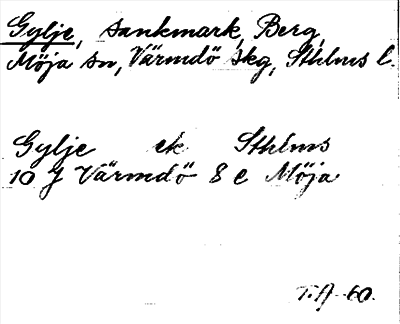 Gylje, sankmark, Berg,
Möja sn, Värmdö skg, Sthlms l.
Gylje ek Sthlms
10 J Värmdö 8 e Möja
T.A -60.